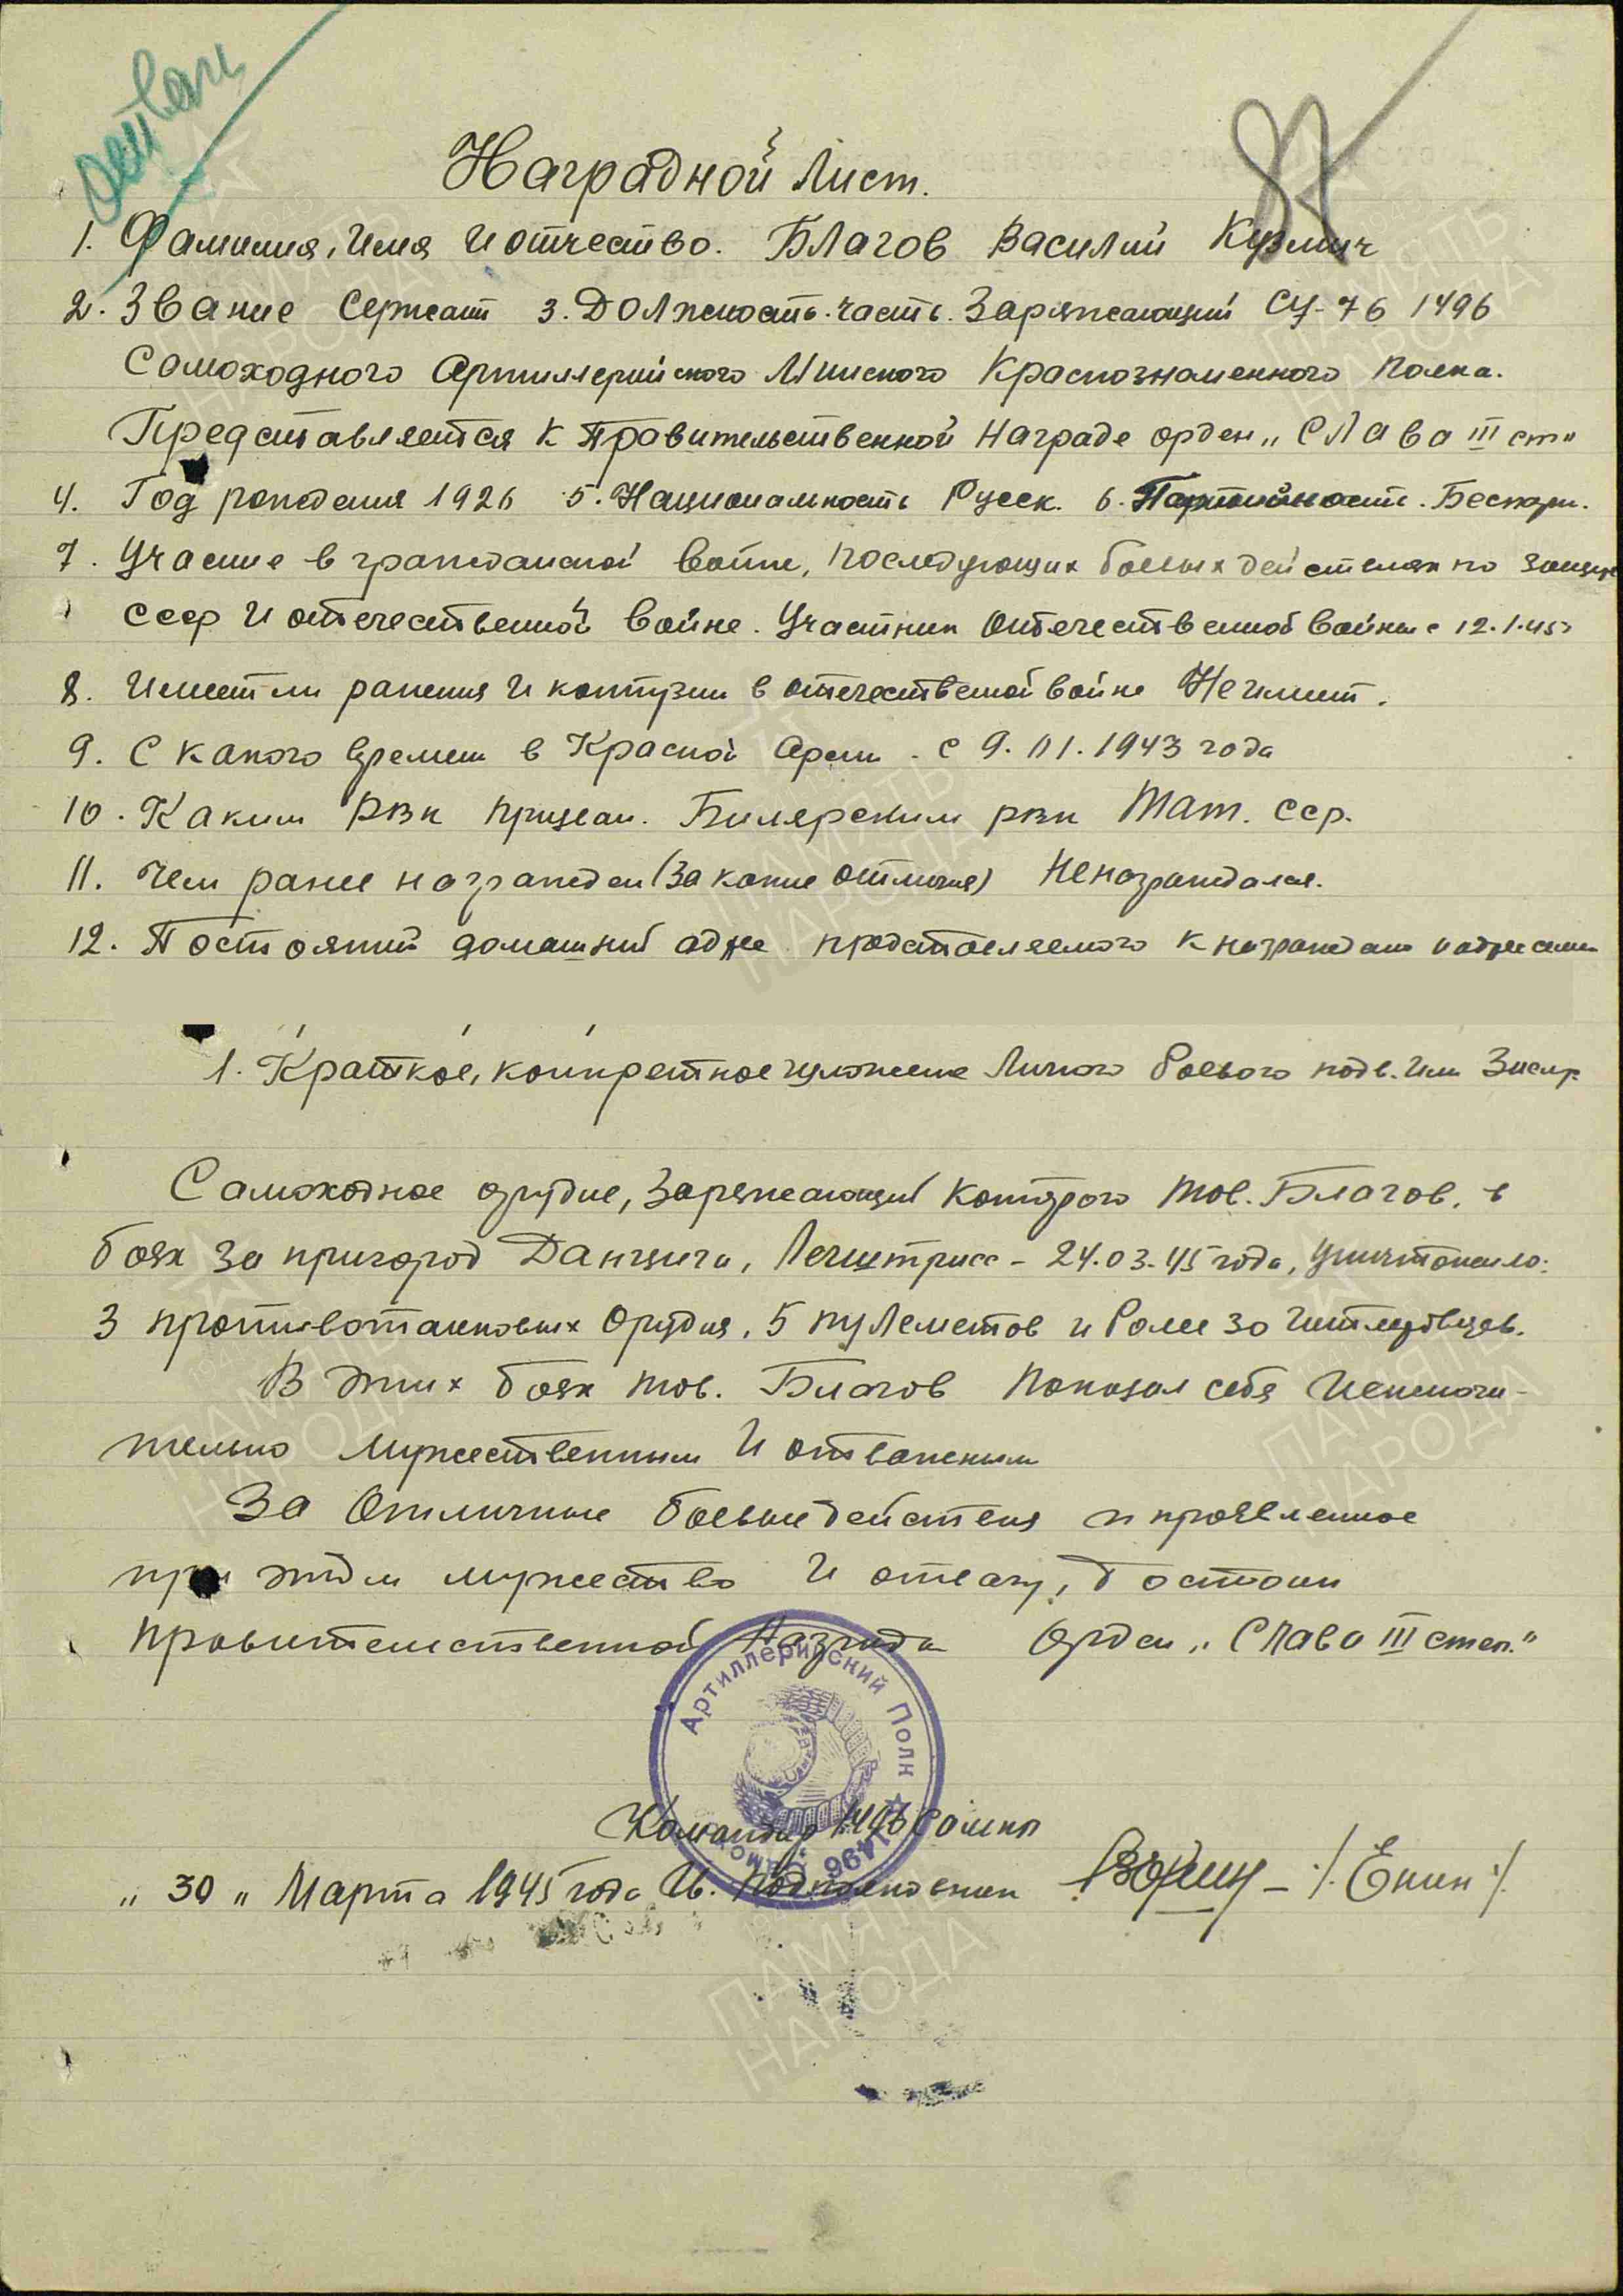 Наградной Лист.
1. Фамилия, Имя и отчество. Благов Василий Кузмич
2. Звание Сержант 3. Должность. часть. Заряжающий СУ-76 1496
Самоходного Артиллерийского Минского Краснознаменного полка.
Представляется к Правительственной Награде орден „Слава III ст"
4. Год рождения 1926 5. Национальность Русск. 6. Партийность. Беспарт.
7. Учасние в гражданской войне, последующих боевых действиях по защите
СССР и отечественной войне. Участник Отечественной войны с 12.1.45г
8. Имеет ли ранения и контузии в отечественной войне Не имеет.
9. С какого времени в Красной Армии - с 9.01.1943 года
10. Каким РВК призван. Билярским рвк Тат. ССР.
11. Чем ранее награжден (За какие отличия) Не награждался.
12. Постоянный домашний адрес представляемого к награждению и адрес семьи
1. Краткое, конкретное изложение Личного боевого подв. или Заслуг
Самоходное орудие, Заряжающий которого тов. Благов, в
боях за пригород Данцига, 24.03.45 года, уничтожило:
3 противотанковых орудия, 5 пулеметов и более 30 гитлеровцев.
В этих боях тов. Благов показал себя исключи-
тельно мужественным и отважным
За Отличные боевые действия и проявленное
при этом мужество и отвагу, Достоин
правительственной Награды Орден „Слава III степ."
Артиллерийский Полк
1496
Командир 1496 самкп
„30" Марта 1945 года Гв. Подполковник /Ёкин/
ПАМЯТЬ
НАРОДА
ПАМЯТЬ
НАРОДА
ПАМЯТЬ
НАРОДА
ПАМЯТЬ
НАРОДА
ПАМЯТЬ
НАРОДА
ПАМЯТЬ
НАРОДА